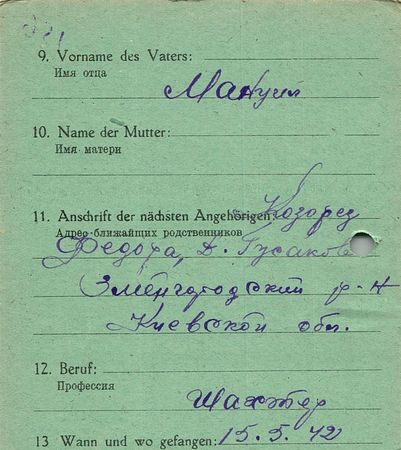 9. Vorname des Vaters:
Имя отца
Мануил
10. Name der Mutter:
Имя матери
11. Anschrift der nächsten Angehörigen: Козорез
Адрес ближайщих родственников
Федора, д. Гусаково
Звенгородский р-н
Киевской обл.
12. Beruf:
Профессия
Шахтер
13 Wann und wo gefangen: 15.5.42